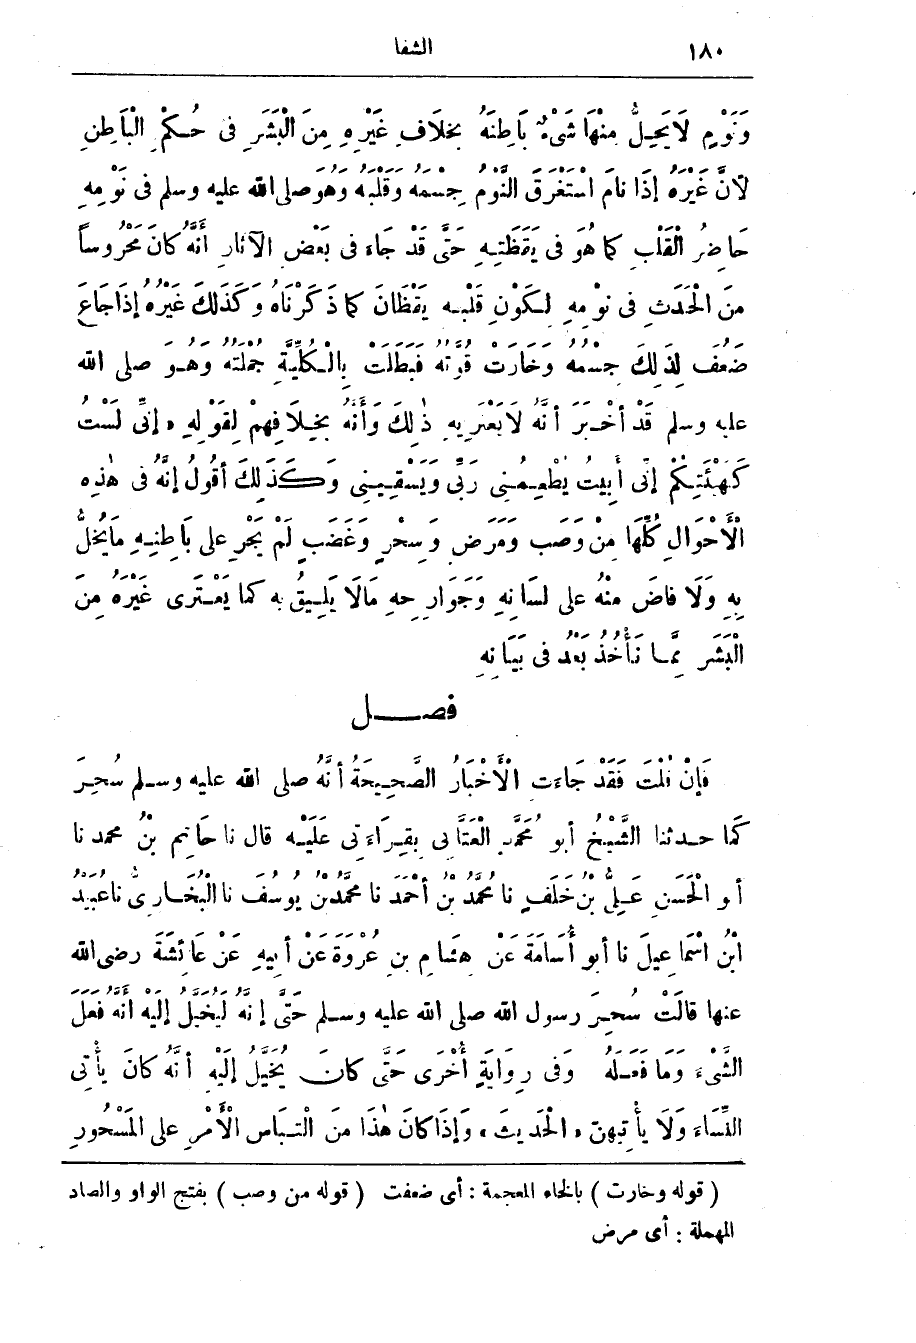 ١٨٠ الشفا
وَنَوْمٍ لَا يَحِلُّ مِنْهَا شَىْءٌ بَاطِنَهُ بِخِلَافِ غَيْرِهِ مِنَ الْبَشَرِ فى حُكْمِ الْبَاطِنِ
لأنَّ غَيْرَهُ إذَا نامَ اسْتَغْرَقَ النَّوْمُ جِسْمَهُ وَقَلْبَهُ وَهُوَ صلى الله عليه وسلم فى نَوْمِهِ
حَاضِرُ الْقَلْبِ كما هُوَ فى يَقَظَتِهِ حَتَّى قَدْ جَاءَ فى بَعْضِ الآثارِ أنَّهُ كانَ مَحْرُوساً
مِنَ الْحَدَثِ فى نَوْمِهِ لِكَوْنِ قَلْبِهِ يَقْظَانَ كما ذَكَرْنَاهُ وَكَذَلِكَ غَيْرُهُ إذَا جَاعَ
ضَعُفَ لِذَلِكَ جِسْمُهُ وَخَارَتْ قُوَّتُهُ فَبَطَلَتْ بِالْكُلِّيَّةِ جُمْلَتُهُ وَهُوَ صلى الله
عليه وسلم قَدْ أخْبَرَ أنَّهُ لَا يَعْتَرِيهِ ذٰلِكَ وَأنَّهُ بِخِلَافِهِمْ لِقَوْلِهِ « إنِّى لَسْتُ
كَهَيْئَتِكُمْ إنِّى أبِيتُ يُطْعِمُنِى رَبِّى وَيَسْقِينِى وَكَذَلِكَ أقُولُ إنَّهُ فى هٰذِهِ
الْأَحْوَالِ كُلِّهَا مِنْ وَصَبٍ وَمَرَضٍ وَسِحْرٍ وَغَضَبٍ لَمْ يَجْرِ على بَاطِنِهِ مَا يُخِلُّ
بِهِ وَلَا فاضَ مِنْهُ على لسَانِهِ وَجَوَارِحِهِ مَالَا يَلِيقُ بِهِ كما يَعْتَرِى غَيْرَهُ مِنَ
الْبَشَرِ مِمَّا نَأْخُذُ بَعْدُ فى بَيَانِهِ
فصــل
فَإنْ قُلْتَ فَقَدْ جَاءَتِ الْأَخْبَارُ الصَّحِيحَةُ أنَّهُ صلى الله عليه وسلم سُحِرَ
كَمَا حدثنا الشَّيْخُ أبو مُحَمَّدٍ الْعَتَّابِى بِقِرَاءَتِى عَلَيْهِ قال نا حَاتِمُ بْنُ محمد نا
أبو الْحَسَنِ عَلِىُّ بْنُ خَلَفٍ نا مُحَمَّدُ بْنُ أحْمَدَ نا مُحَمَّدُ بْنُ يُوسُفَ نا الْبُخَارِىُّ نا عُبَيْدُ
ابْنُ اسْمَاعِيلَ نا أبو أُسَامَةَ عَنْ هِشَامِ بنِ عُرْوَةَ عَنْ أبِيهِ عَنْ عَائِشَةَ رضى الله
عنها قالَتْ سُحِرَ رسول الله صلى الله عليه وسلم حَتَّى إنَّهُ لَيُخَيَّلُ إلَيْهِ أنَّهُ فَعَلَ
الشَّىْءَ وَمَا فَعَلَهُ وَفى رِوَايَةٍ أُخْرَى حَتَّى كانَ يُخَيَّلُ إلَيْهِ أنَّهُ كانَ يَأْتِى
النِّسَاءَ وَلَا يَأْتِيهِنَّ « الْحَدِيثَ » وَإذَا كانَ هٰذَا مِنَ الْتِبَاسِ الْأَمْرِ على المَسْحُورِ
( قوله وخارت ) بالخاء المعجمة : أى ضعفت ( قوله من وصب ) بفتح الواو والصاد
المهملة : أى مرض